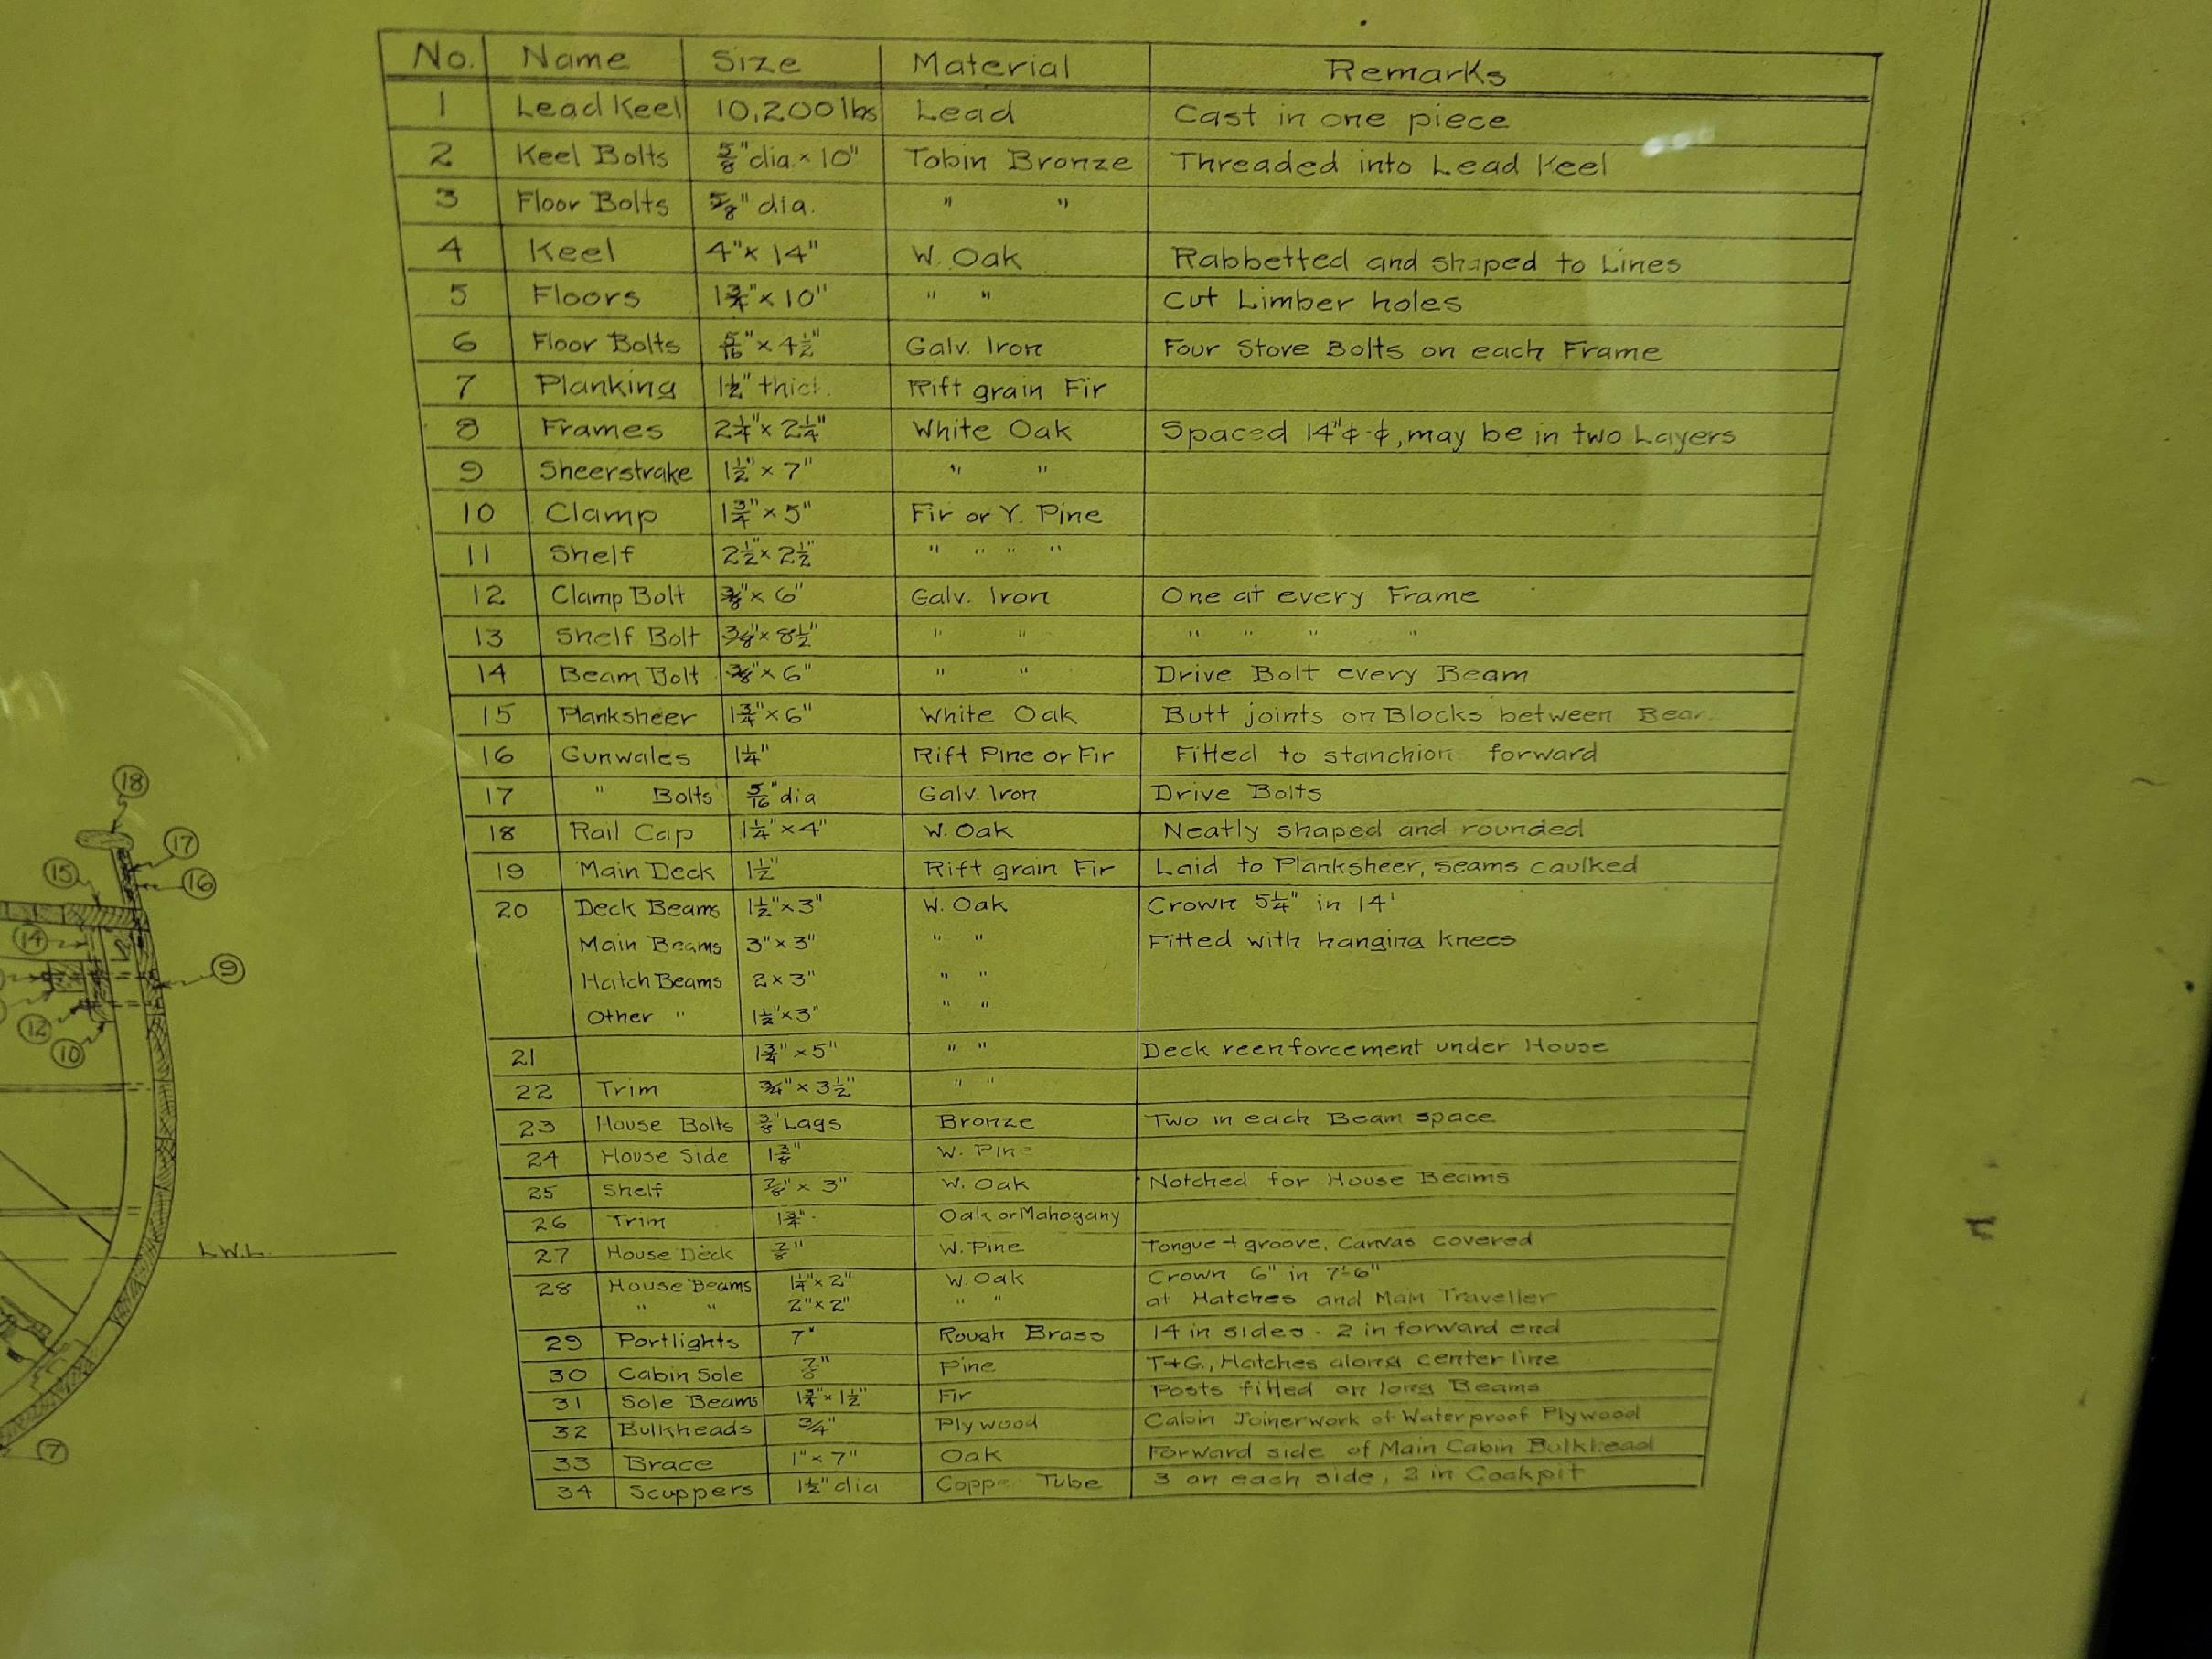 No. Name Size Material Remarks
1 Lead Keel 10,200 lbs Lead Cast in one piece
2 Keel Bolts 5/8" dia. × 10" Tobin Bronze Threaded into Lead Keel
3 Floor Bolts 5/8" dia. " "
4 Keel 4" × 14" W. Oak Rabbetted and shaped to Lines
5 Floors 1 3/4" × 10" " " Cut Limber holes
6 Floor Bolts 5/16" × 4 1/2" Galv. Iron Four Stove Bolts on each Frame
7 Planking 1 1/2" thick. Rift grain Fir
8 Frames 2 1/4" × 2 1/4" White Oak Spaced 14" ¢-¢, may be in two Layers
9 Sheerstrake 1 1/2" × 7" " "
10 Clamp 1 3/4" × 5" Fir or Y. Pine
11 Shelf 2 1/2" × 2 1/2" " " " "
12 Clamp Bolt 3/8" × 6" Galv. Iron One at every Frame
13 Shelf Bolt 3/8" × 8 1/2" " " " " " "
14 Beam Bolt 3/8" × 6" " " Drive Bolt every Beam
15 Planksheer 1 3/4" × 6" White Oak Butt joints on Blocks between
16 Gunwales 1 1/4" Rift Pine or Fir Fitted to stanchion forward
17 " Bolts 5/16" dia Galv. Iron Drive Bolts
18 Rail Cap 1 1/4" × 4" W. Oak Neatly shaped and rounded
19 Main Deck 1 1/2" Rift grain Fir Laid to Planksheer, seams caulked
20 Deck Beams 1 1/2" × 3" W. Oak Crown 5 1/4" in 14'
Main Beams 3" × 3" " " Fitted with hanging knees
Hatch Beams 2 × 3" " "
Other " 1 1/2" × 3" " "
21 1 3/4" × 5" " " Deck reenforcement under House
22 Trim 3/4" × 3 1/2" " "
23 House Bolts 3/8" Lags Bronze Two in each Beam space
24 House Side 1 3/8" W. Pine
25 Shelf 7/8" × 3" W. Oak Notched for House Beams
26 Trim 1 3/4" Oak or Mahogany
27 House Deck 7/8" W. Pine Tongue + groove, Canvas covered
28 House Beams 1 1/4" × 2" W. Oak Crown 6" in 7'-6"
" " 2" × 2" " " at Hatches and Main Traveller
29 Portlights 7" Rough Brass 14 in sides - 2 in forward end
30 Cabin Sole 7/8" Pine T+G., Hatches along center line
31 Sole Beams 1 3/4" × 1 1/2" Fir Posts fitted on long Beams
32 Bulkheads 3/4" Plywood Cabin Joinerwork of Waterproof Plywood
33 Brace 1" × 7" Oak Forward side of Main Cabin Bulkhead
34 Scuppers 1 1/2" dia Copper Tube 3 on each side, 2 in Cockpit
18
17
15
16
14
9
12
10
L.W.L.
7